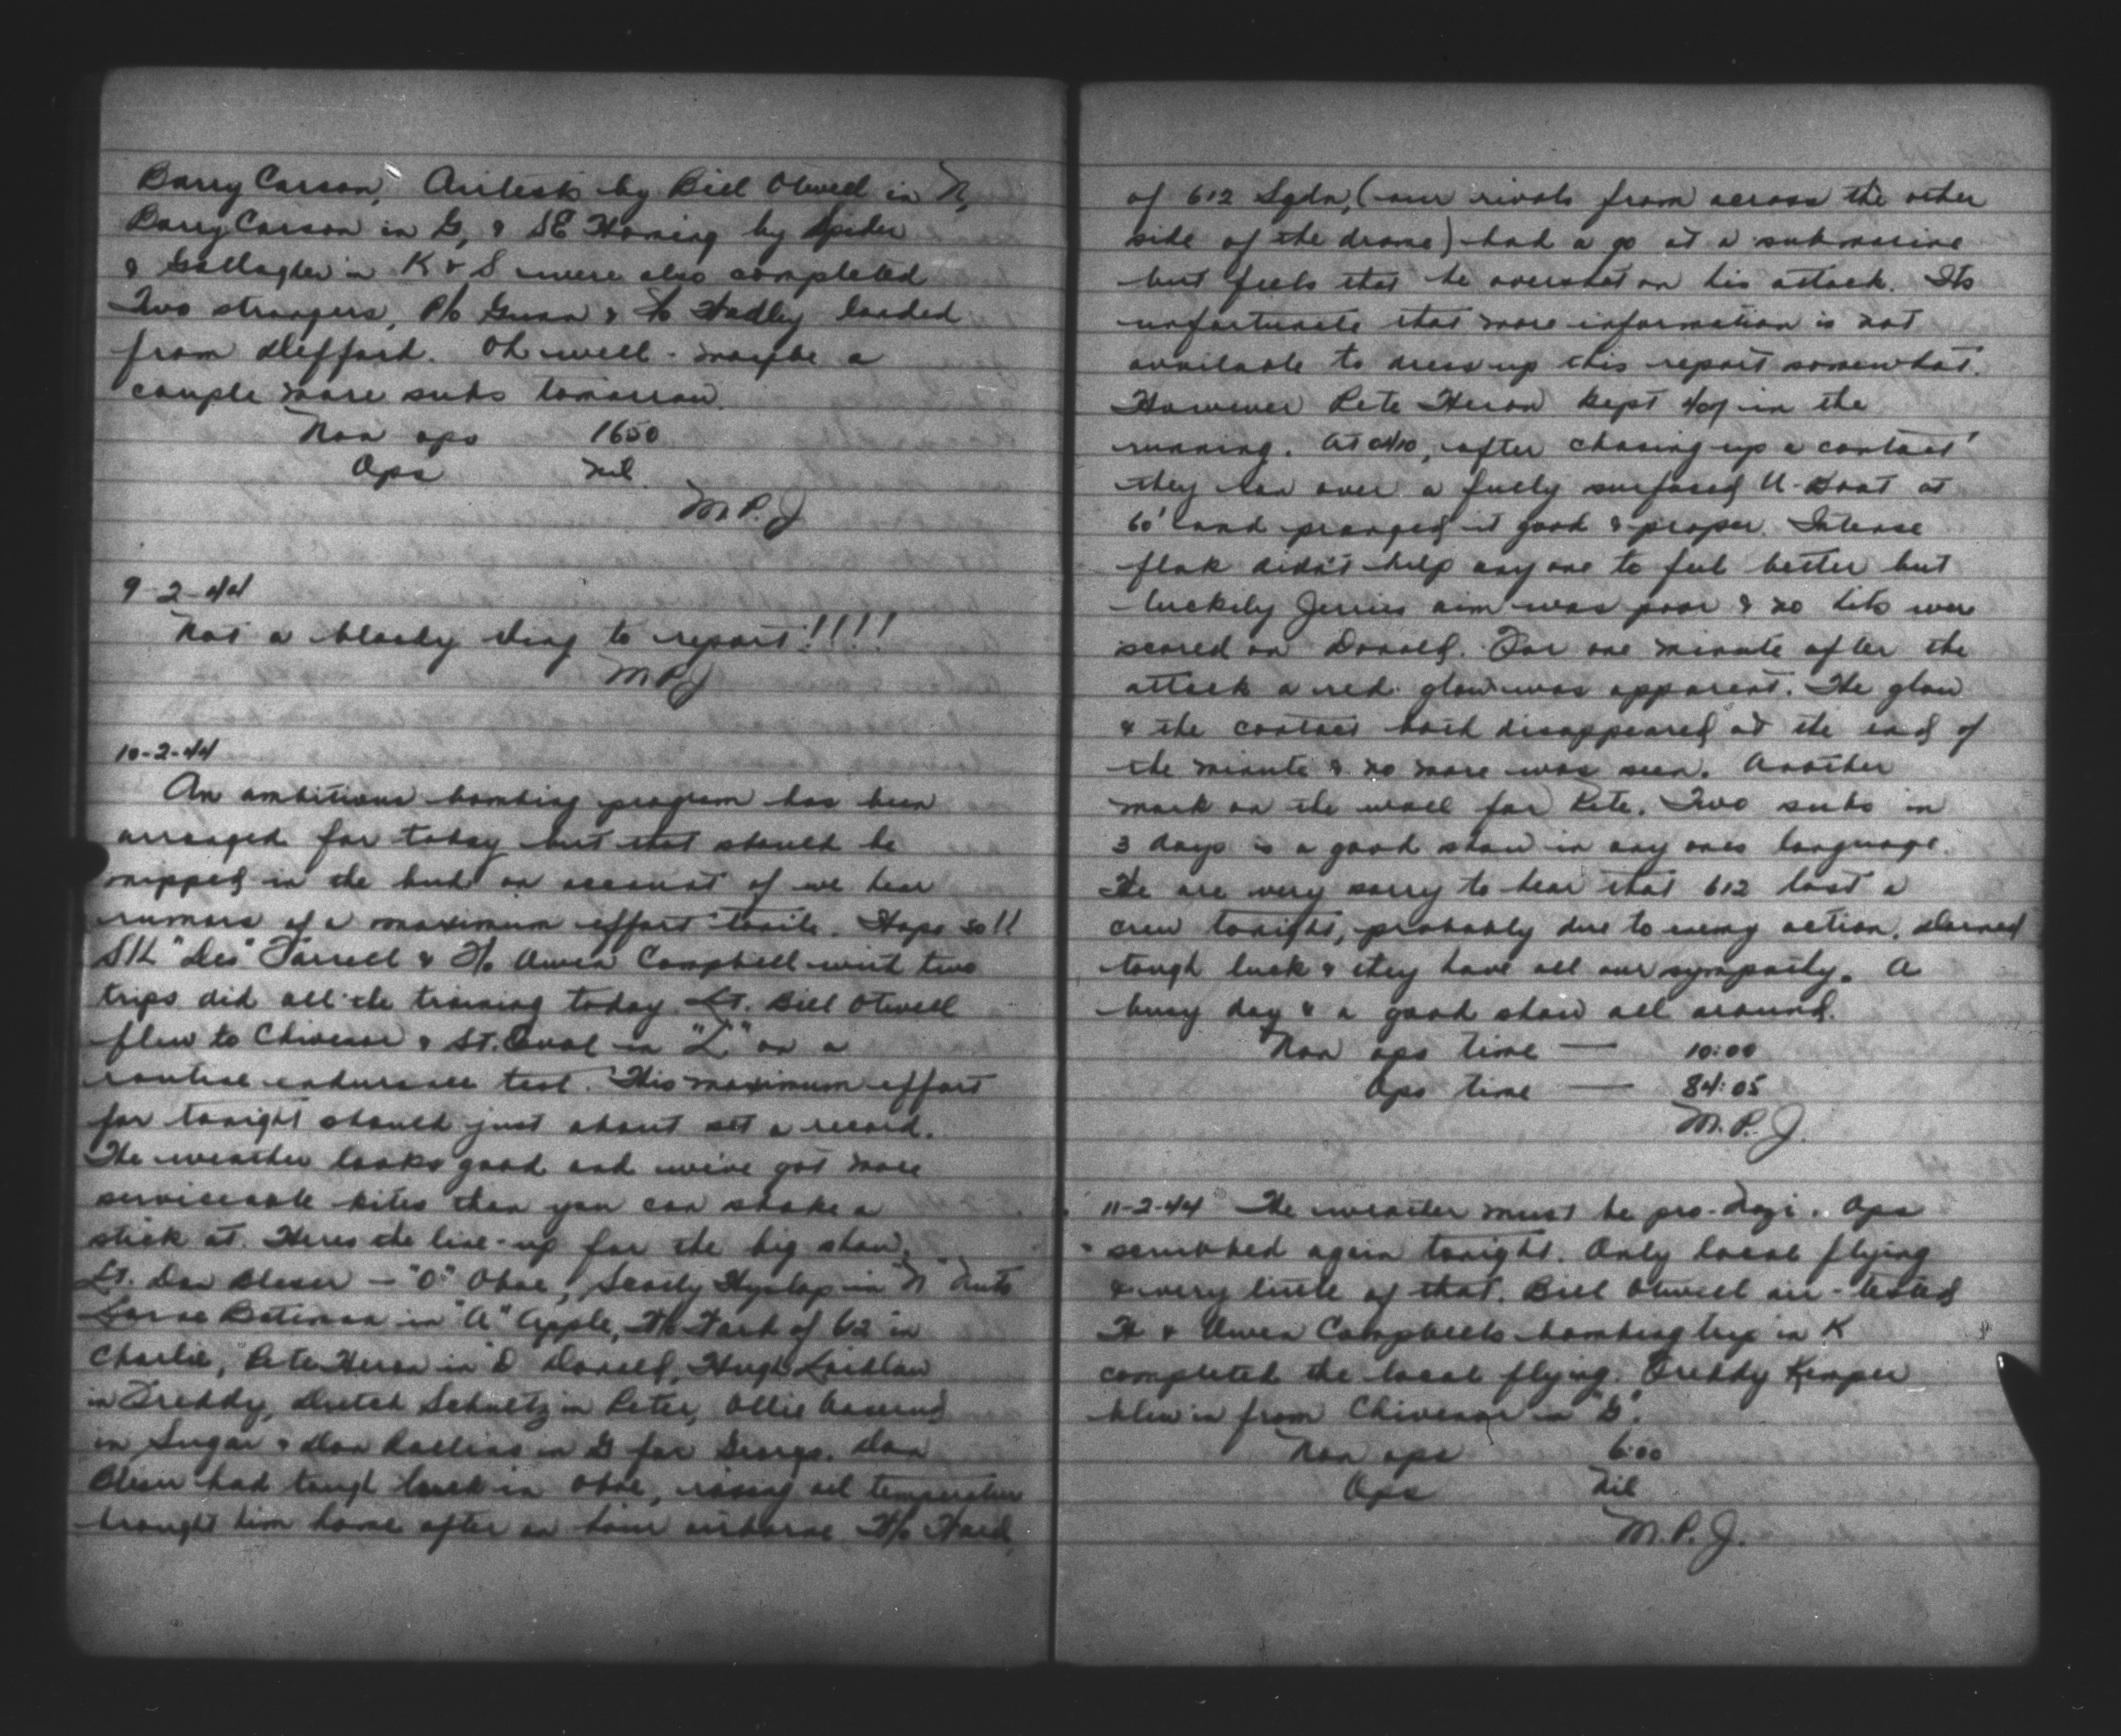 Barry Carson, Airtests by Bill Otwell in N,
Barry Carson in G, & SE Homing by Spider
& Gallagher in K & S were also completed
Two strangers, P/O Gunn & F/O Hadley landed
from Defford. Oh well - maybe a
couple more subs tomorrow.
Non ops 1650
Ops nil
M.P.J
9-2-44
Not a bloody thing to report!!!!
M.P.J
10-2-44
An ambitious bombing program has been
arranged for today but that should be
nipped in the bud on account of we hear
rumors of a maximum effort tonite. Hope so!!
S/L "Des" Farrell & F/O Owen Campbell with two
trips did all the training today. Lt. Bill Otwell
flew to Chivenor & St. Eval in "L" on a
routine endurance test. This maximum effort
for tonight should just about set a record.
The weather looks good and we've got more
serviceable kites than you can shake a
stick at. Heres the line-up for the big show.
Lt. Don Bleser - "O" Oboe, Scotty Hyslop in "N" Nuts
Lorne Bateman in "A" Apple, F/O of 612 in
Charlie, Pete Heron in D Donald, Hugh Laidlaw
in Freddy, Dutch Schultz in Peter, Ollie
in Sugar & Don Rollins in G for George. Don
Bleser had tough luck in Oboe, rising oil temperature
brought him home after an hour airborne. F/O
of 612 Sqdn, (our rivals from across the other
side of the drome) had a go at a submarine
but feels that he overshot on his attack. Its
unfortunate that more information is not
available to dress up this report somewhat.
However Pete Heron kept 407 in the
running. At 0410, after chasing up a contact
they ran over a fully surfaced U-Boat at
60' and pranged it good & proper. Intense
flak didn't help anyone to feel better but
luckily Jerries aim was poor & no hits were
scored on Donald. For one minute after the
attack a red glow was apparent. The glow
& the contact both disappeared at the end of
the minute & no more was seen. Another
mark on the wall for Pete. Two subs in
3 days is a good show in any ones language.
We are very sorry to hear that 612 lost a
crew tonight, probably due to enemy action. Darned
tough luck & they have all our sympathy. A
busy day & a good show all around.
Non ops time — 10:00
Ops time — 84:05
M.P.J.
11-2-44 The weather must be pro-Nazi. Ops
scrubbed again tonight. Only local flying
& very little of that. Bill Otwell air-tested
H & Owen Campbells bombing trip in K
completed the local flying. Freddy Kemper
blew in from Chivenor in "G".
Non ops 6:00
Ops Nil
M.P.J.